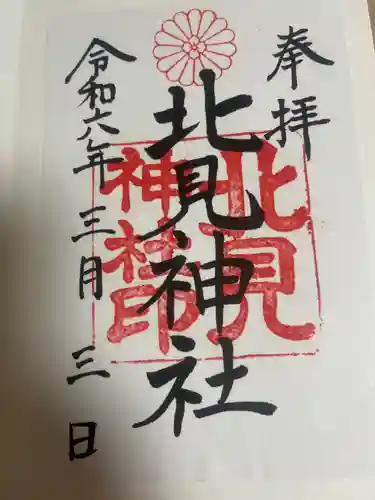 奉拝
北見神社
北見
神社印
令和六年 三月 三日